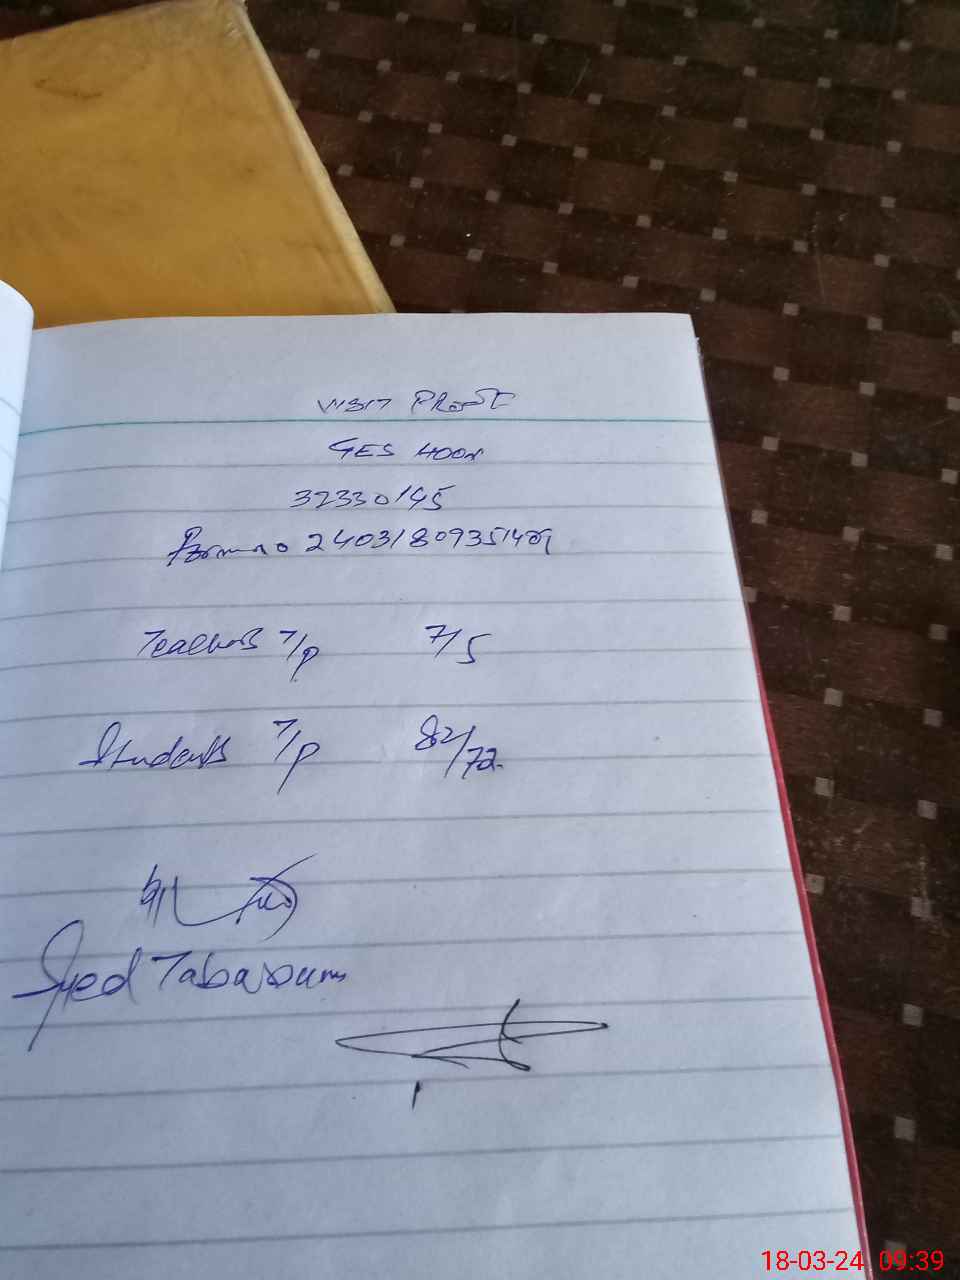 VISIT PROOF
GES HOON
32330145
Form no 24031809351409
Teachers T/P 7/5
Students T/P 82/72
Syed Tabassum
18-03-24 09:39